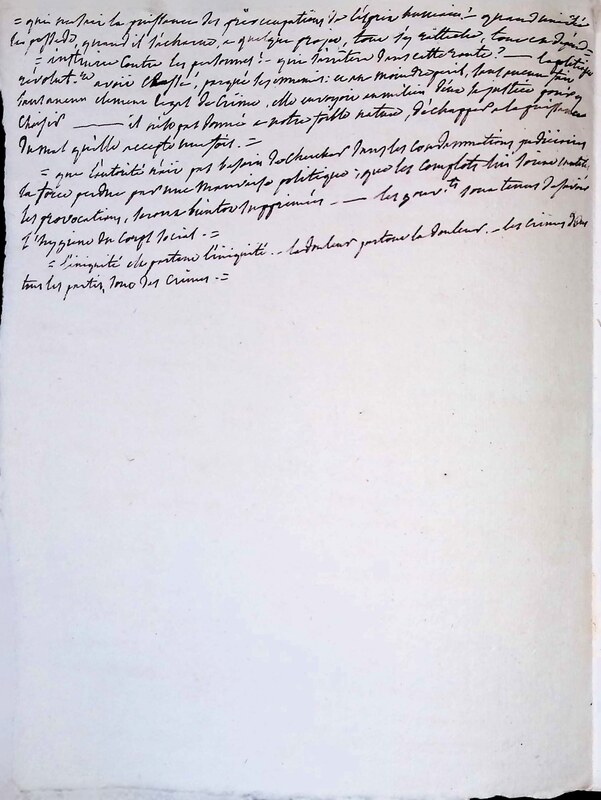 = qui ne sait la puissance des préoccupations de l'esprit humain! - quand une idée
les possède, quand il s'acharne à quelque projet, tout s'y rattache, tout en dépend -
= instruire contre les personnes! - qui s'arrêtera dans cette route? - la politique
révolut.re avait classé, parqué les ennemis: au moindre péril, sans aucun fait
sans aucun élément légal de crime, elle envoyait au milieu d'eux sa justice pour y
choisir — il n'est pas donné à notre faible nature, d'échapper à la puissance
du mal qu'elle accepte une fois. =
= que l'autorité n'ait pas besoin de chercher dans les condamnations judiciaires
la force perdue par une mauvaise politique; que les complots lui soient
les provocations, seront bientôt supprimées - les gouv.ts sont tenus de savoir
l'hygiène du corps social. =
= l'iniquité est partout l'iniquité - la douleur partout la douleur - les crimes dans
tous les partis, sont des crimes. =